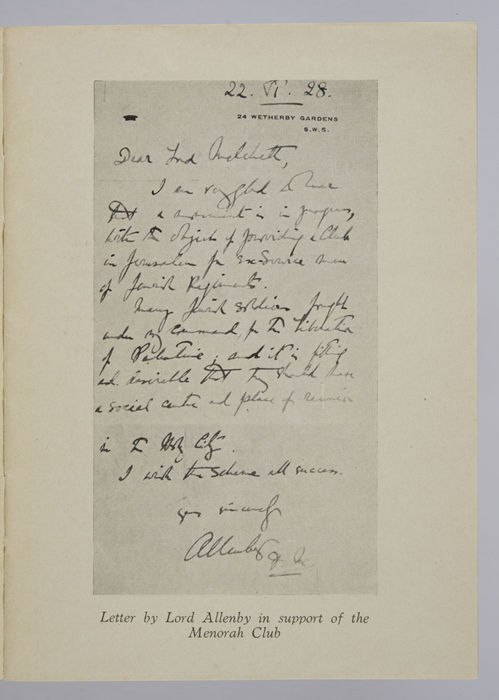 22. VI. 28.
24 WETHERBY GARDENS
S.W.5.
Dear Lord Melchett,
I am very glad to hear
that a movement is in progress,
with the object of providing a Club
in Jerusalem for Ex-Service men
of Jewish Regiments.
Many Jewish soldiers fought
under my command, for the liberation
of Palestine; and it is fitting
and desirable that they should have
a social centre and place of reunion
in the Holy City.
I wish the scheme all success.
Yours sincerely
Allenby
Letter by Lord Allenby in support of the
Menorah Club